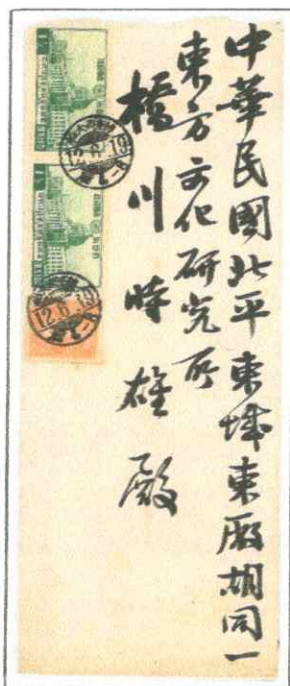 中華民國北平東城東厰胡同一
東方文化研究所
橋川時雄殿
12.6.19
12.6.19